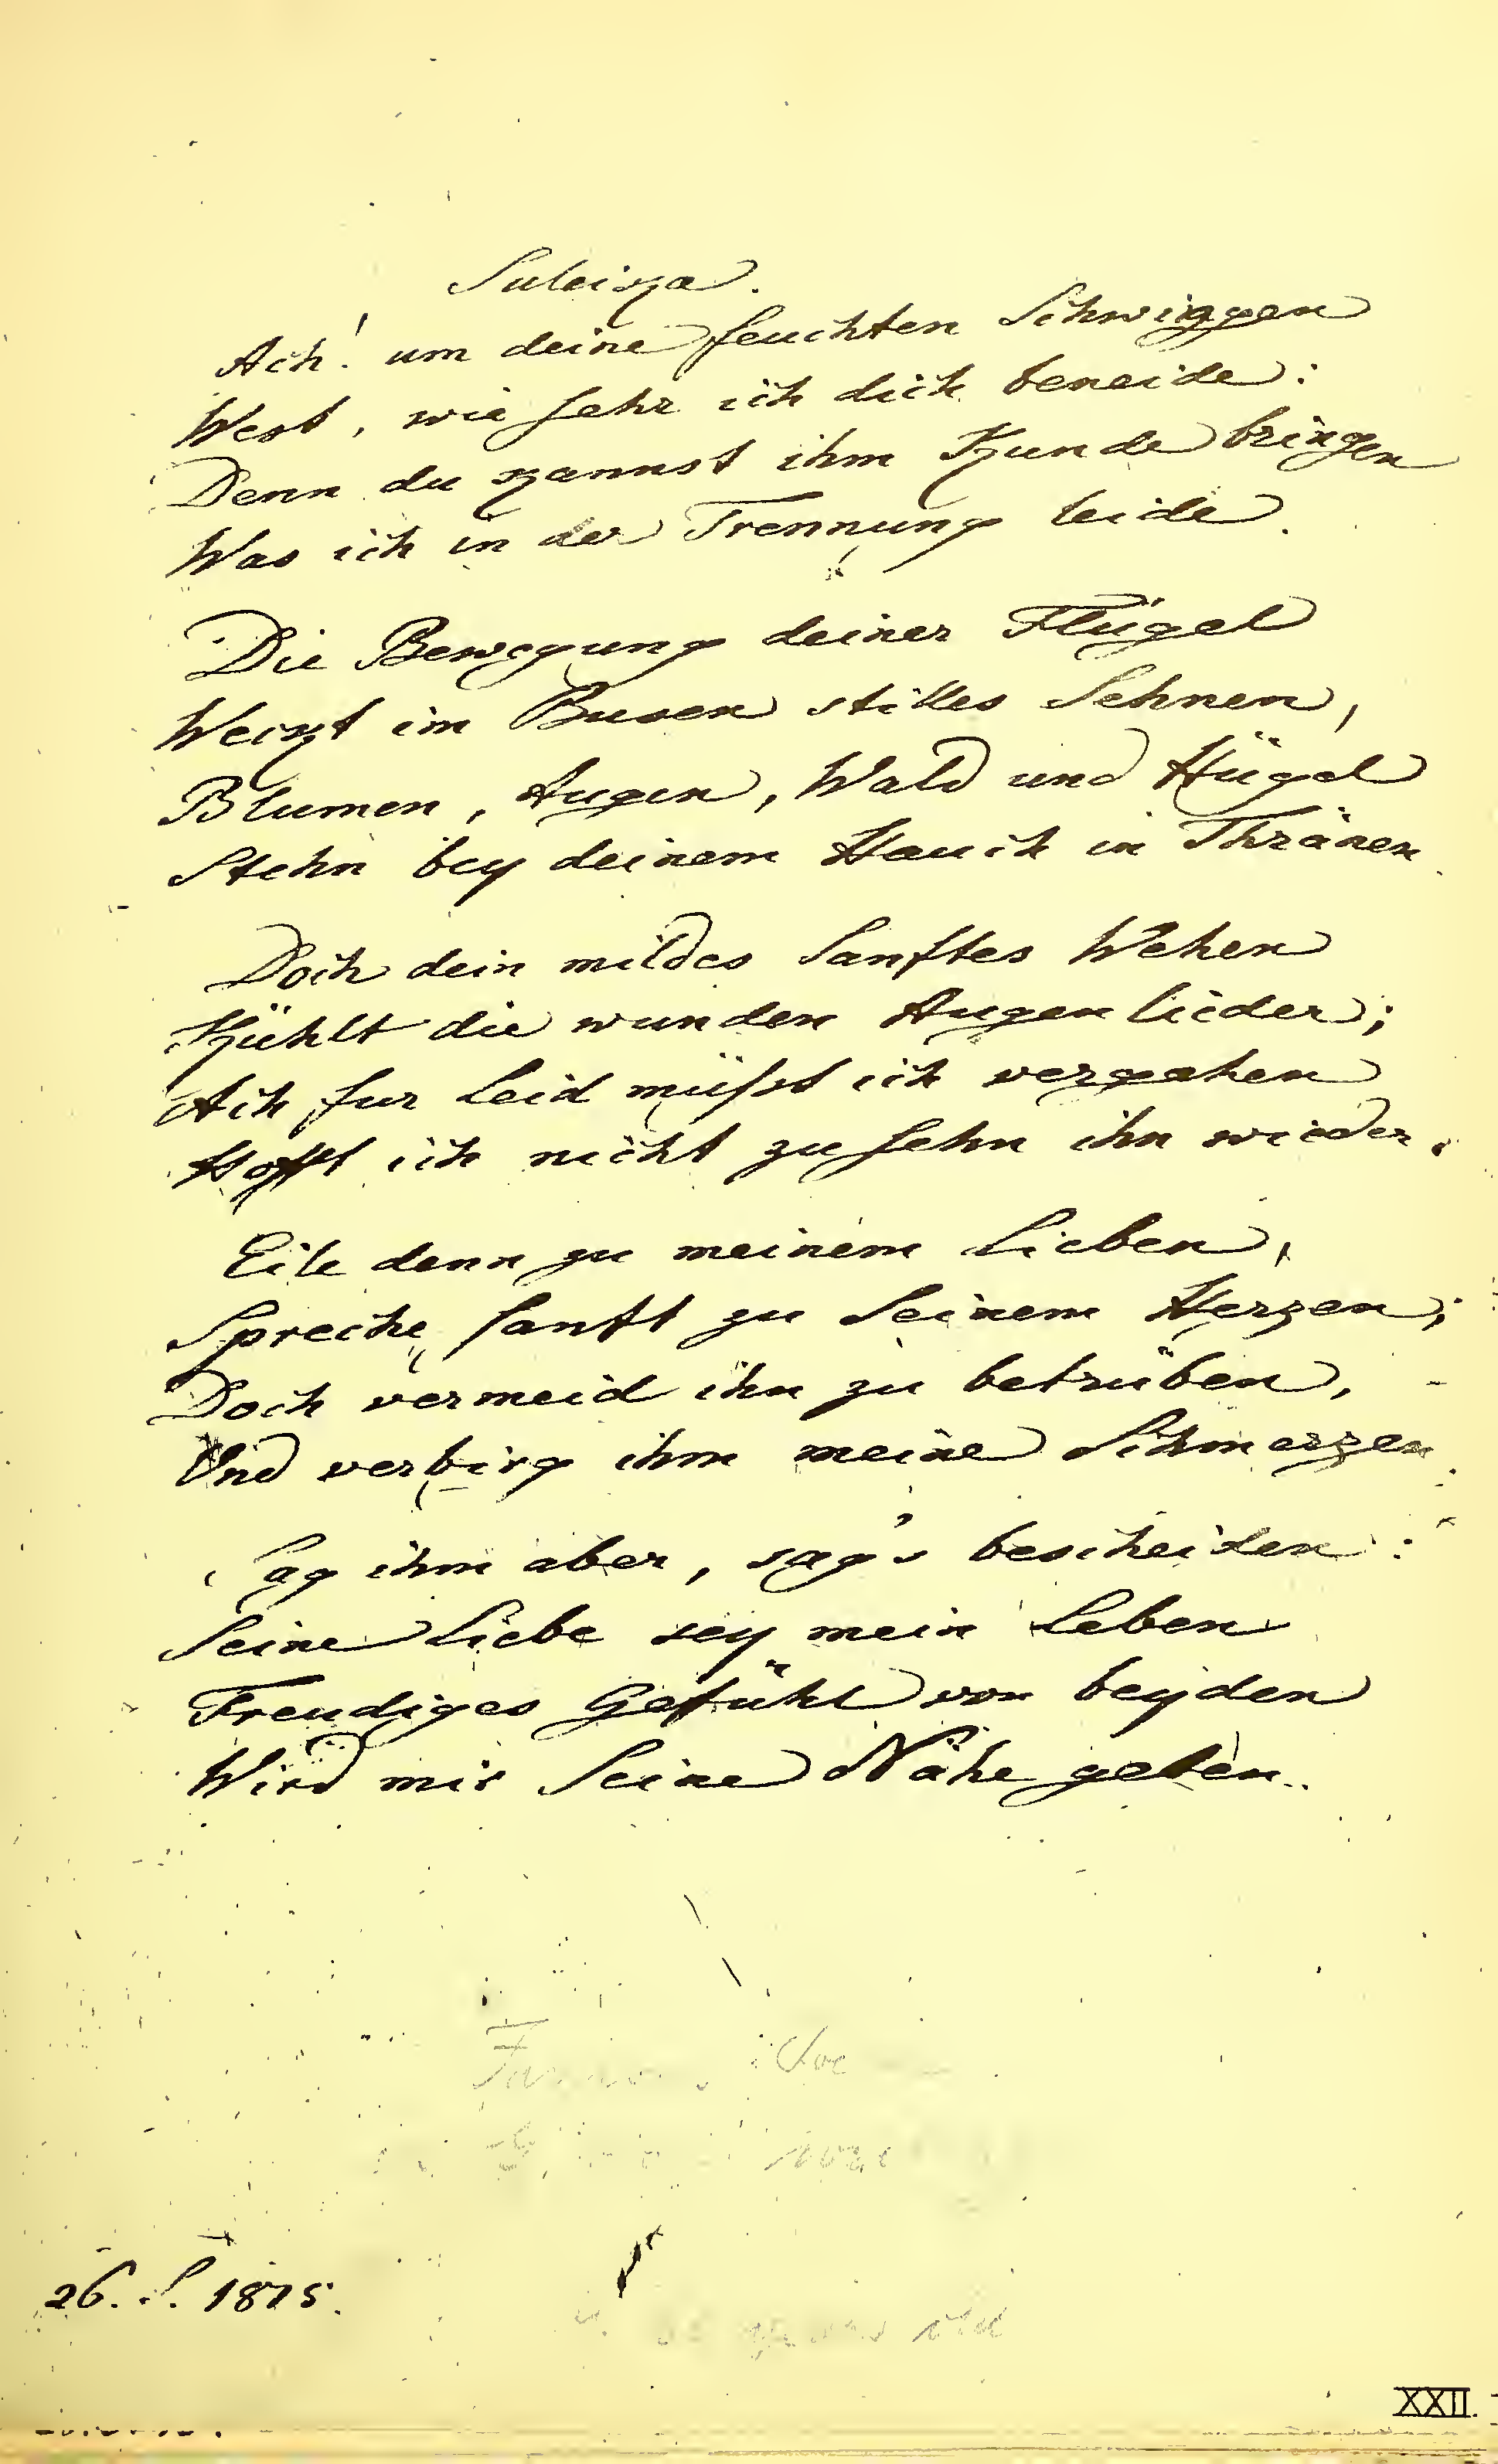 Suleika.
Ach! um deine feuchten Schwingen
West, wie sehr ich dich beneide:
Denn du kannst ihm Kunde bringen
Was ich in der Trennung leide.
Die Bewegung deiner Flügel
Weckt im Busen stilles Sehnen,
Blumen, Augen, Wald und Hügel
Stehn bey deinem Hauch in Thränen.
Doch dein mildes sanftes Wehen
Kühlt die wunden Augenlieder;
Ach fur Leid müsst ich vergehen
Hofft ich nicht zu sehn ihn wieder.
Eile denn zu meinem Lieben,
Spreche sanft zu seinem Herzen;
Doch vermeid ihn zu betrüben,
Und verbirg ihm meine Schmerzen.
Sag ihm aber, sag's bescheiden:
Seine Liebe sey mein Leben
Freudiges Gefühl von beyden
Wird mir seine Nähe geben.
26. S. 1815.
XXII.